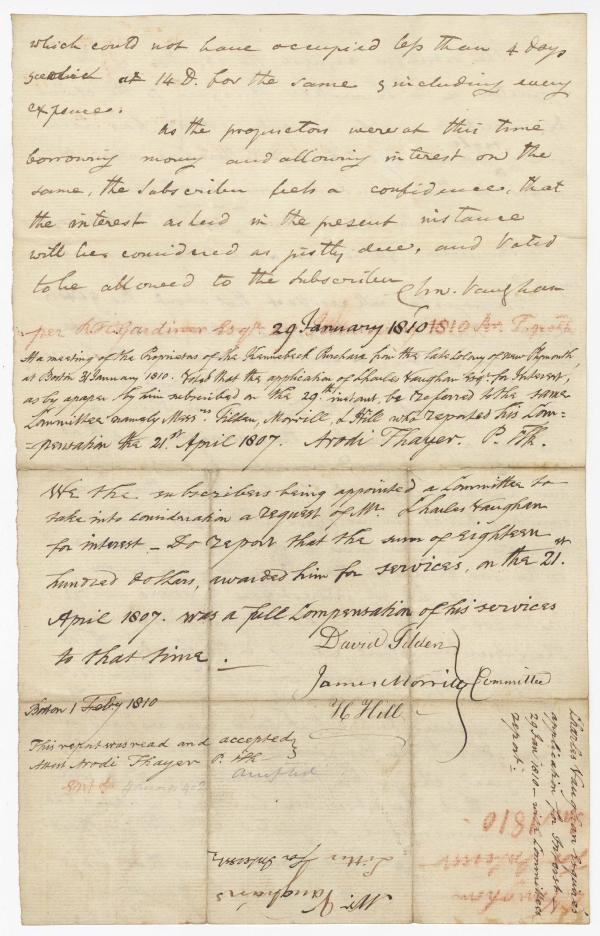 which could not have occupied less than 4 days
at 14 D. for the same & including every
expence.
As the proprietors were at this time
borrowing money and allowing interest on the
same, the Subscriber feels a confidence, that
the interest asked in the present instance
will be considered as justly due, and Voted
to be allowed to the Subscriber
Chs. Vaughan
per R H Gardiner Esqr. 29 January 1810 1810
At a meeting of the Proprietors of the Kennebeck Purchase from the late Colony of New Plymouth,
at Boston 31 January 1810. Voted that the application of Charles Vaughan Esqr. for Interest,
as by a paper by him subscribed on the 29th instant, be referred to the same
Committee namely Messrs. Tilden, Morrill, & Hill who reported his Com=
=pensation the 21st April 1807. Arodi Thayer. P. Clk.
We the subscribers being appointed a Committee to
take into consideration a request of Mr. Charles Vaughan
for interest — Do report that the sum of Eighteen
hundred dollars, awarded him for services, on the 21st.
April 1807. was a full Compensation of his services
to that time.
David Tilden
James Morrill
H Hill
Committee
Boston 1 Feby 1810
This report was read and accepted
Attest Arodi Thayer P. Clk
accepted
Charles Vaughan Esquires
application for Interest
29 Jan. 1810 — with Committees
report.
Vaughan
Interest
1810
Mr. Vaughans
Letter for Interest